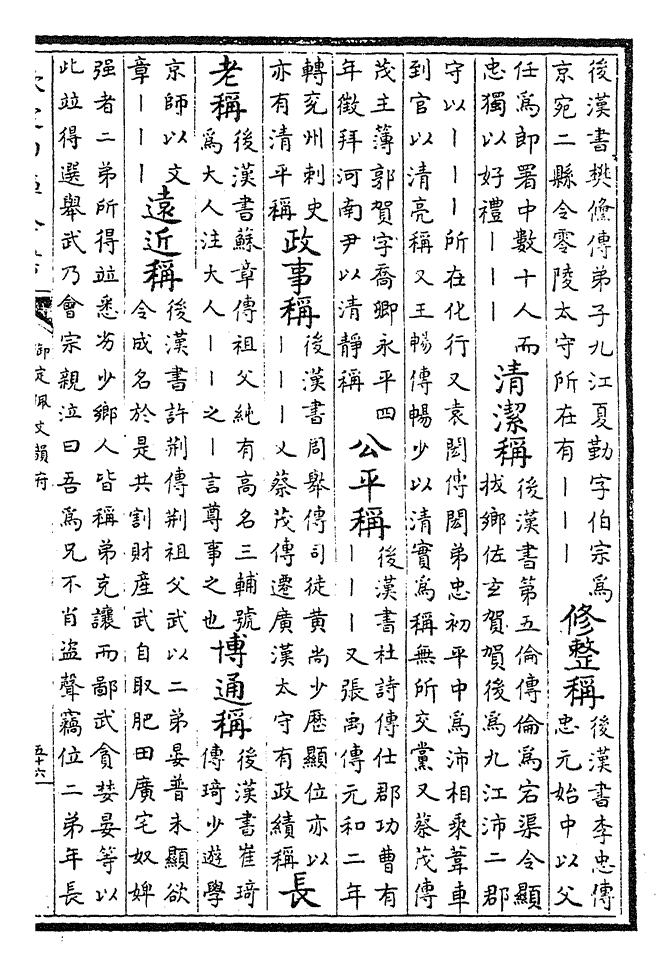 後漢書樊儵傳弟子九江夏勤字伯宗爲
京宛二縣令零陵太守所在有丨丨丨
修整稱
後漢書李忠傳
忠元始中以父
任爲郎署中數十人而
忠獨以好禮丨丨丨
清潔稱
後漢書第五倫傳倫爲宕渠令顯
拔鄉佐玄賀賀後爲九江沛二郡
守以丨丨丨所在化行又袁閎傳閎弟忠初平中爲沛相乘葦車
到官以清亮稱又王暢傳暢少以清實爲稱無所交黨又蔡茂傳
茂主薄郭賀字喬卿永平四
年徵拜河南尹以清靜稱
公平稱
後漢書杜詩傳仕郡功曹有
丨丨丨又張禹傳元和二年
轉兖州刺史
亦有清平稱
政事稱
後漢書周舉傳司徒黄尚少歷顯位亦以
丨丨丨又蔡茂傳遷廣漢太守有政績稱
長
老稱
後漢書蘇章傳祖父純有高名三輔號
爲大人注大人丨丨之丨言尊事之也
博通稱
後漢書崔琦
傳琦少遊學
京師以文
章丨丨丨
遠近稱
後漢書許荆傳荆祖父武以二弟晏普未顯欲
令成名於是共割財產武自取肥田廣宅奴婢
强者二弟所得竝悉劣少鄉人皆稱弟克讓而鄙武貪婪晏等以
此竝得選舉武乃會宗親泣曰吾爲兄不肖盜聲竊位二弟年長
御定佩文韻府
五十六